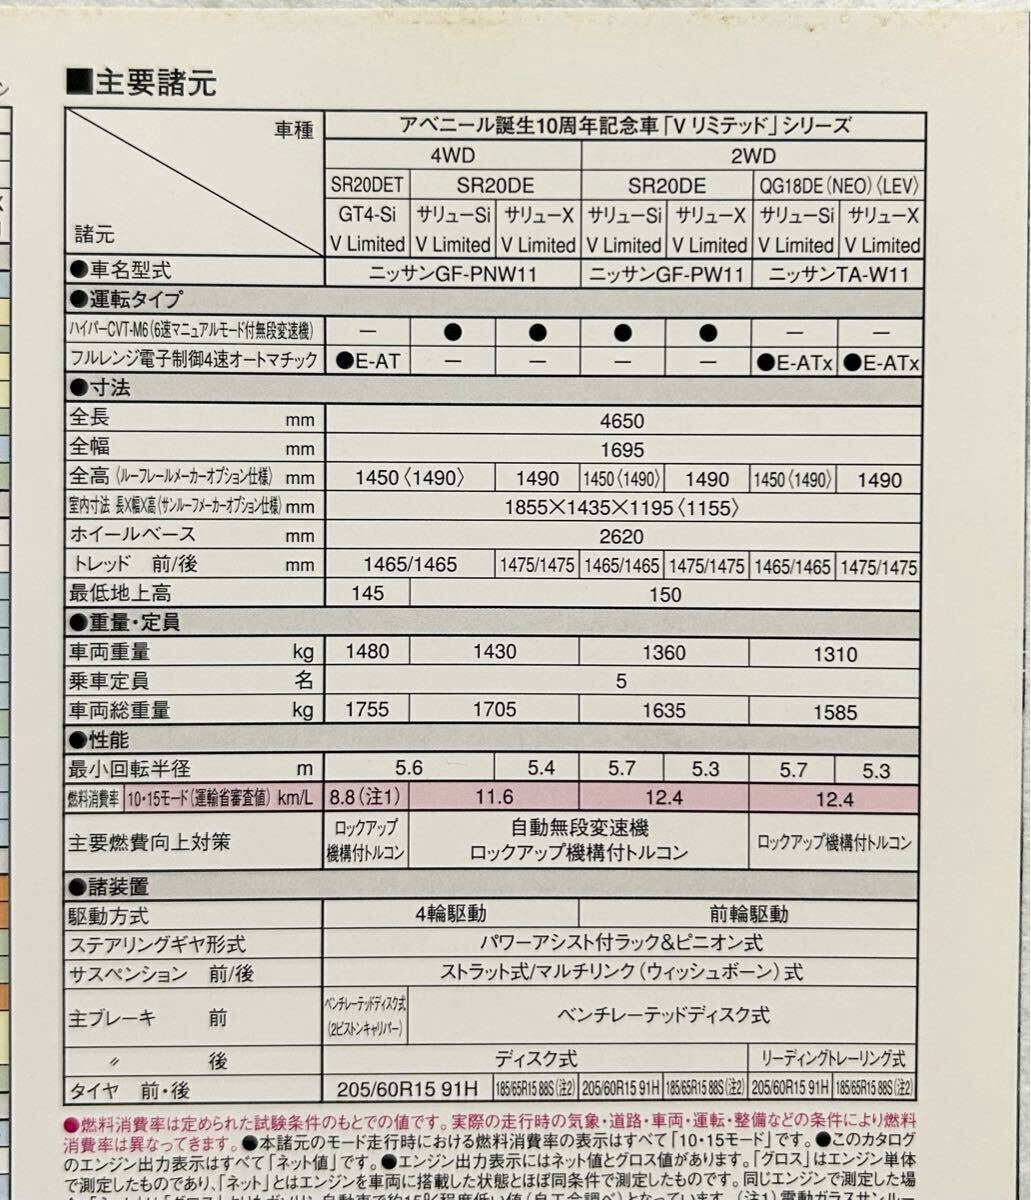 ■主要諸元
車種
諸元
アベニール誕生10周年記念車「V リミテッド」シリーズ
4WD 2WD
SR20DET SR20DE SR20DE QG18DE(NEO)〈LEV〉
GT4-Si サリューSi サリューX サリューSi サリューX サリューSi サリューX
V Limited V Limited V Limited V Limited V Limited V Limited V Limited
●車名型式 ニッサンGF-PNW11 ニッサンGF-PW11 ニッサンTA-W11
●運転タイプ
ハイパーCVT-M6(6速マニュアルモード付無段変速機) — ● ● ● ● — —
フルレンジ電子制御4速オートマチック ●E-AT — — — — ●E-ATx ●E-ATx
●寸法
全長 mm 4650
全幅 mm 1695
全高(ルーフレールメーカーオプション仕様) mm 1450〈1490〉 1490 1450〈1490〉 1490 1450〈1490〉 1490
室内寸法 長×幅×高(サンルーフメーカーオプション仕様) mm 1855×1435×1195〈1155〉
ホイールベース mm 2620
トレッド 前/後 mm 1465/1465 1475/1475 1465/1465 1475/1475 1465/1465 1475/1475
最低地上高 145 150
●重量・定員
車両重量 kg 1480 1430 1360 1310
乗車定員 名 5
車両総重量 kg 1755 1705 1635 1585
●性能
最小回転半径 m 5.6 5.4 5.7 5.3 5.7 5.3
燃料消費率 10・15モード(運輸省審査値) km/L 8.8(注1) 11.6 12.4 12.4
主要燃費向上対策 ロックアップ機構付トルコン 自動無段変速機 ロックアップ機構付トルコン ロックアップ機構付トルコン
●諸装置
駆動方式 4輪駆動 前輪駆動
ステアリングギヤ形式 パワーアシスト付ラック&ピニオン式
サスペンション 前/後 ストラット式/マルチリンク(ウィッシュボーン)式
主ブレーキ 前 ベンチレーテッドディスク式(2ピストンキャリパー) ベンチレーテッドディスク式
〃 後 ディスク式 リーディングトレーリング式
タイヤ 前・後 205/60R15 91H 185/65R15 88S(注2) 205/60R15 91H 185/65R15 88S(注2) 205/60R15 91H 185/65R15 88S(注2)
●燃料消費率は定められた試験条件のもとでの値です。実際の走行時の気象・道路・車両・運転・整備などの条件により燃料
消費率は異なってきます。●本諸元のモード走行時における燃料消費率の表示はすべて「10・15モード」です。●このカタログ
のエンジン出力表示はすべて「ネット値」です。●エンジン出力表示にはネット値とグロス値があります。「グロス」はエンジン単体
で測定したものであり、「ネット」とはエンジンを車両に搭載した状態とほぼ同条件で測定したものです。同じエンジンで測定した場